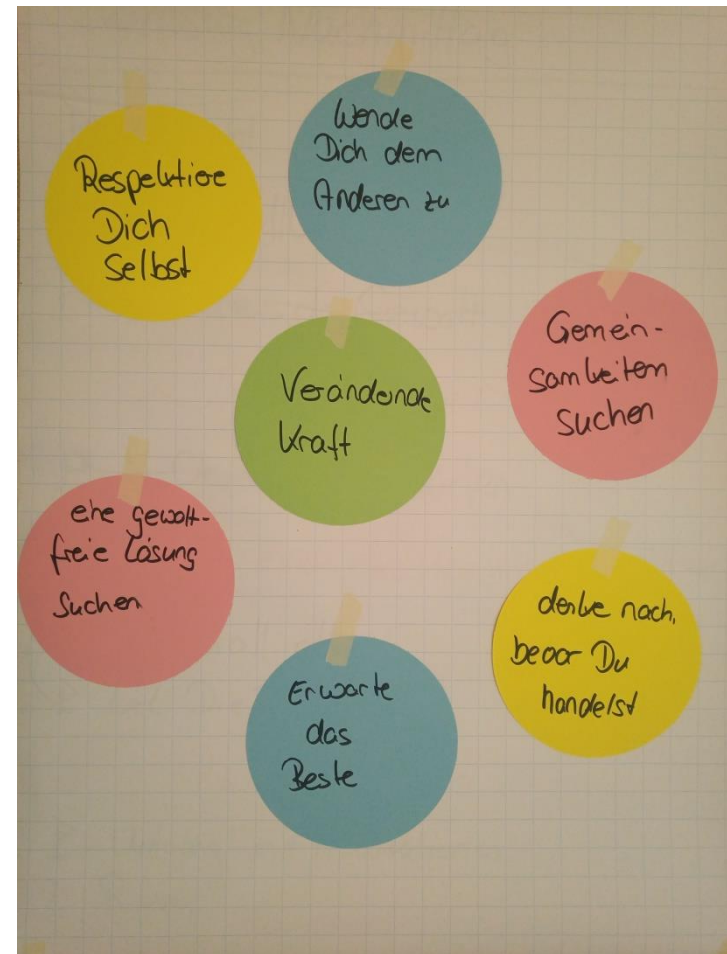 Respektiere
Dich
Selbst
Wende
Dich dem
Anderen zu
Gemein-
samkeiten
suchen
Verändernde
Kraft
ehe gewalt-
freie Lösung
suchen
denke nach,
bevor Du
handelst
Erwarte
das
Beste